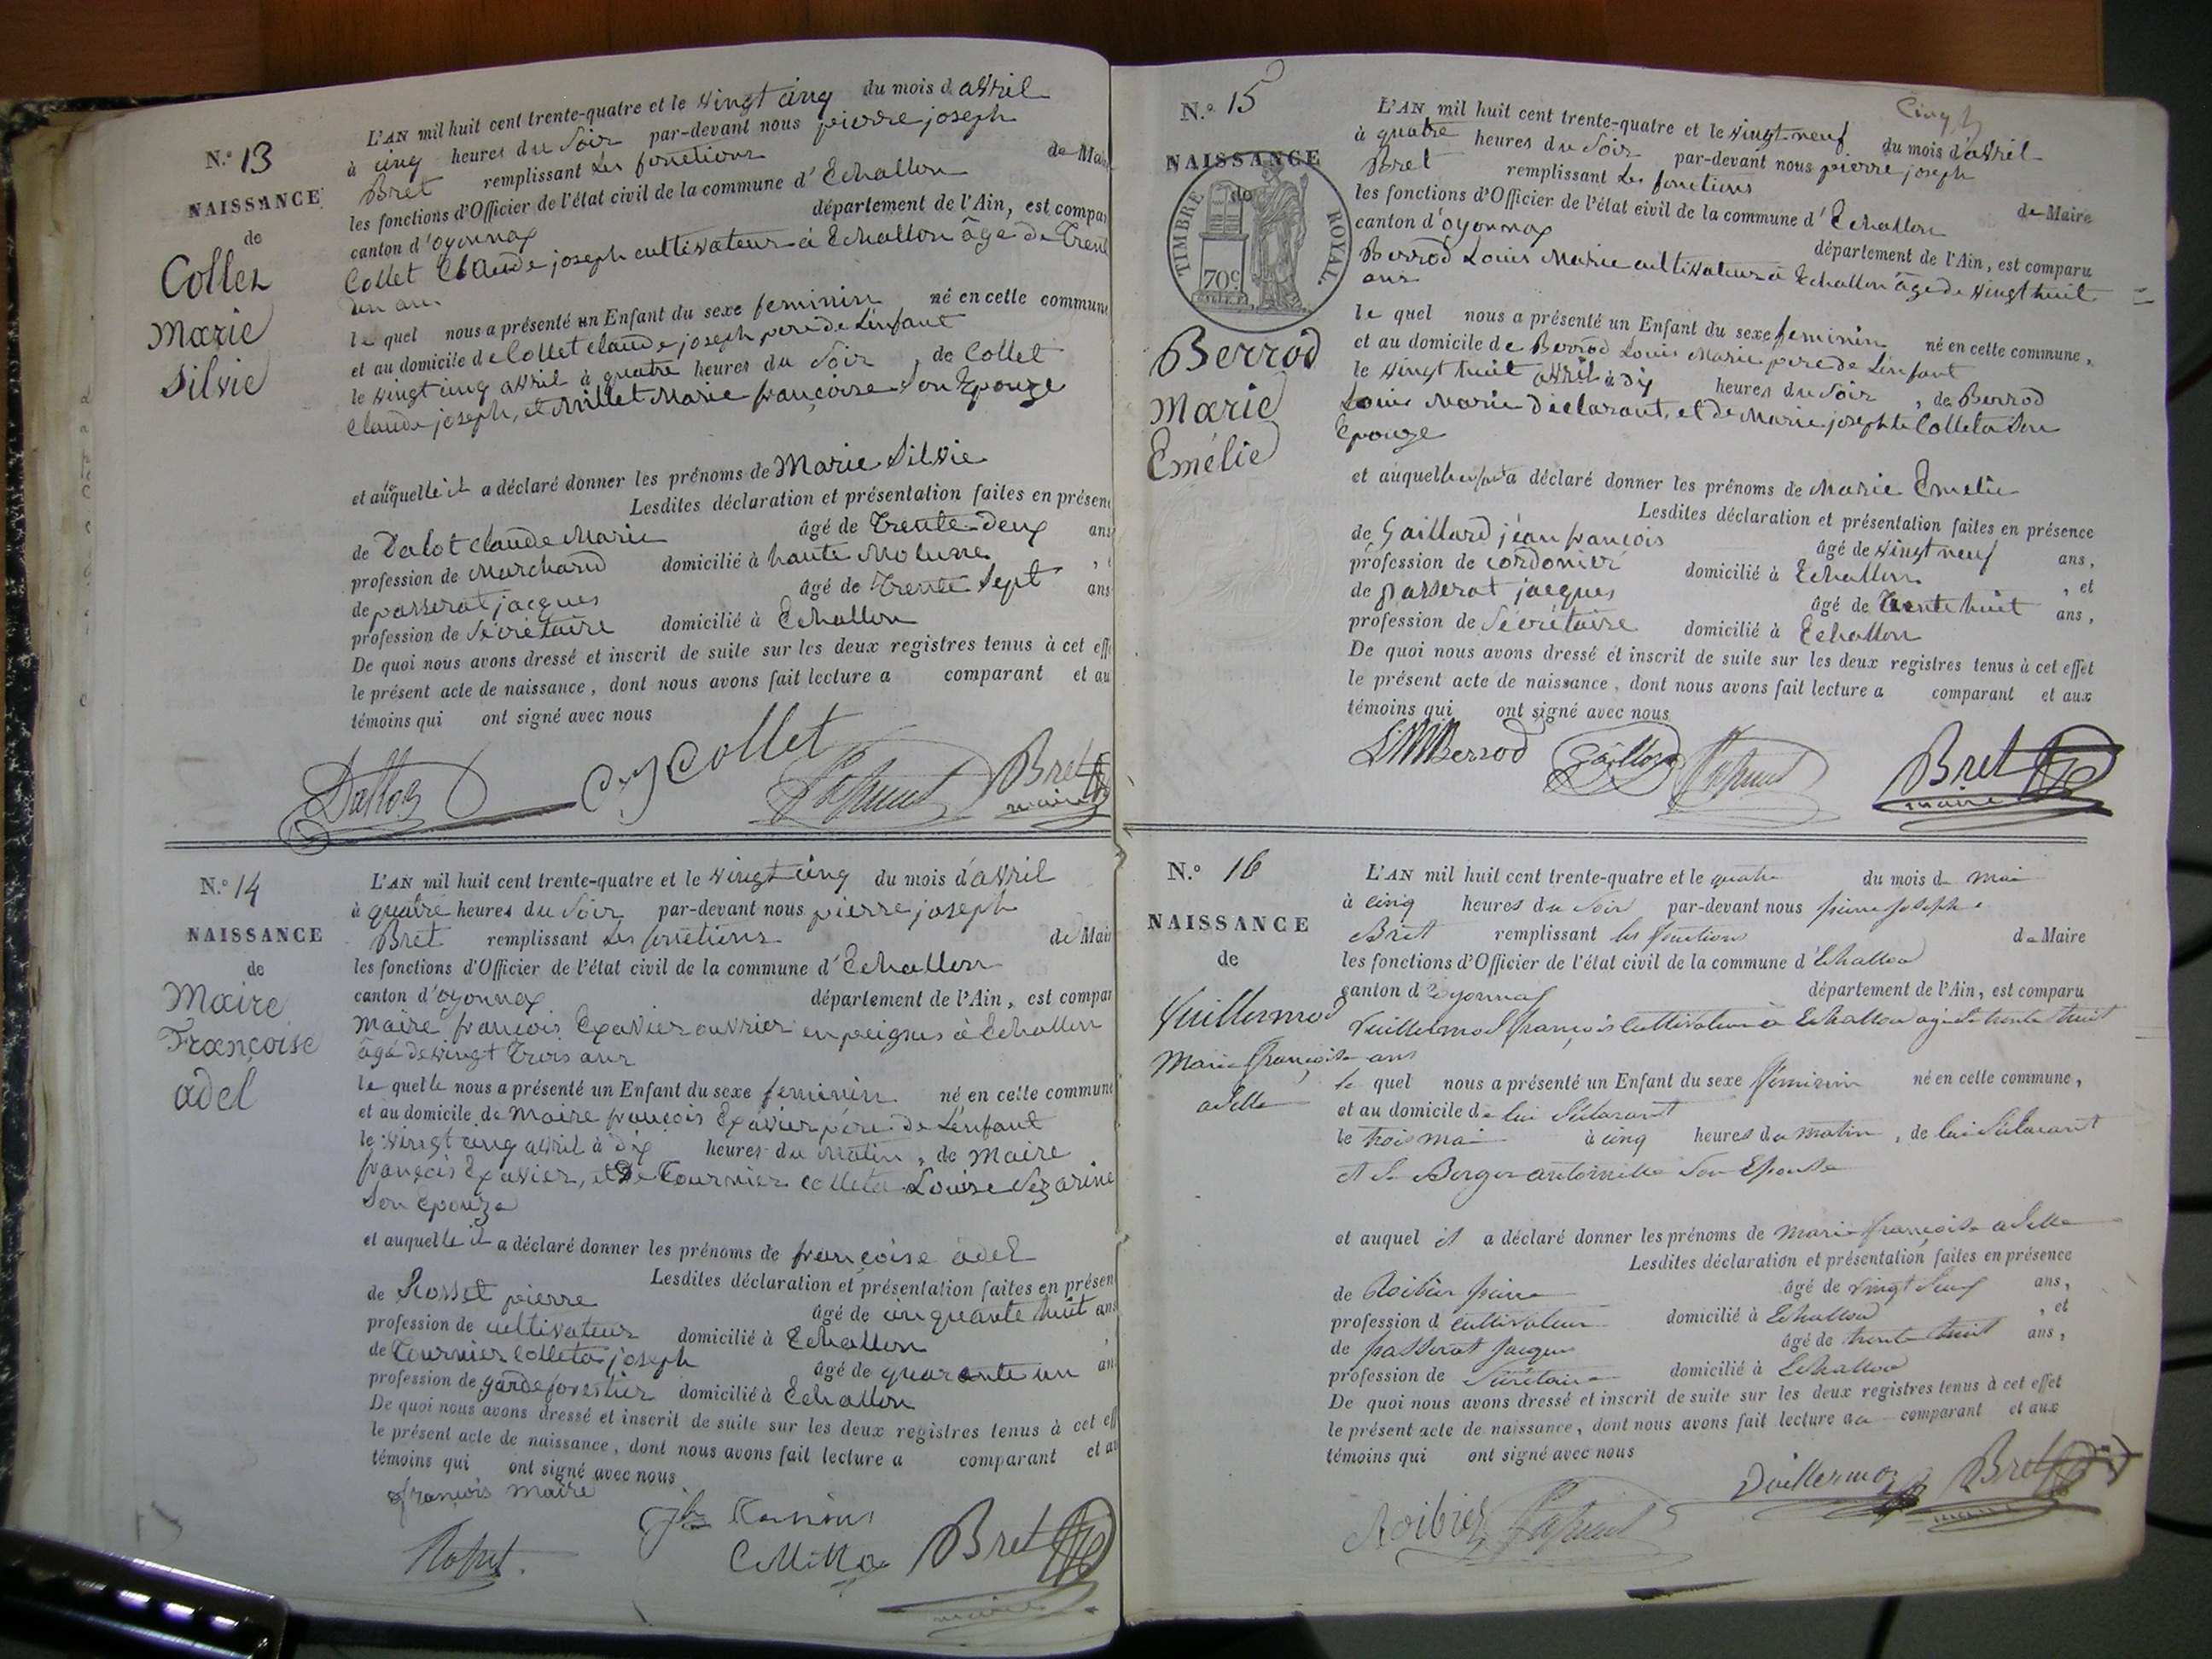 N.º 13
NAISSANCE
de
Collet
Marie
Silvie
L'AN mil huit cent trente-quatre et le vingt cinq du mois d avril
à cinq heures du Soir par-devant nous pierre joseph
Bret remplissant Les fonctions de Mai
les fonctions d'Officier de l'état civil de la commune d'Echallon
canton d'oyonnax département de l'Ain, est compar
Collet Claude joseph cultivateur à Echallon âge de Trent
un an
le quel nous a présenté un Enfant du sexe feminin né en cette commune
et au domicile de Collet claude joseph pere de L'enfant
le vingt cinq avril à quatre heures du Soir, de Collet
Claude joseph, et Millet Marie françoise Son Epouze
et auquelle il a déclaré donner les prénoms de Marie Silvie
Lesdites déclaration et présentation faites en présen
de Dalot claude Marie âgé de Trente deux ans
profession de Marchand domicilié à haute Molune,
de passerat jacques âgé de Trente Sept ans
profession de Secrétaire domicilié à Echallon
De quoi nous avons dressé et inscrit de suite sur les deux registres tenus à cet eff
le présent acte de naissance, dont nous avons fait lecture a comparant et au
témoins qui ont signé avec nous
Dalloz Collet Passerat Bret
maire
N.º 14
NAISSANCE
de
Maire
Françoise
adel
L'AN mil huit cent trente-quatre et le vingt cinq du mois d'avril
à quatre heures du Soir par-devant nous pierre joseph
Bret remplissant Les fonctions de Mair
les fonctions d'Officier de l'état civil de la commune d'Echallon
canton d'oyonnax département de l'Ain, est compar
Maire françois Exavier ouvrier en peignes à Echallon
âgé de vingt Trois ans
le quelle nous a présenté un Enfant du sexe feminin né en cette commune
et au domicile de Maire françois Exavier pére de L'enfant
le vingt cinq avril à dix heures du Matin, de Maire
françois Exavier, et De Tournier colleta Louise Sezarine
Son Epouze
et auquelle il a déclaré donner les prénoms de françoise adel
Lesdites déclaration et présentation faites en présen
de Rosset pierre âgé de cinquante huit ans
profession de cultivateur domicilié à Echallon,
de Tournier Colleta joseph âgé de quarante un an
profession de garde forestier domicilié à Echallon
De quoi nous avons dressé et inscrit de suite sur les deux registres tenus à cet eff
le présent acte de naissance, dont nous avons fait lecture a comparant et au
témoins qui ont signé avec nous
françois Maire
Rosset Bret
maire
N.º 15
NAISSANCE
de
TIMBRE ROYAL.
70c
Berrod
Marie
Emélie
L'AN mil huit cent trente-quatre et le vingt-neuf du mois d'avril
à quatre heures du Soir par-devant nous pierre joseph
Bret remplissant Les fonctions de Maire
les fonctions d'Officier de l'état civil de la commune d'Echallon
canton d'oyonnax département de l'Ain, est comparu
Berrod Louis Marie cultivateur à Echallon âge de vingt huit
ans
le quel nous a présenté un Enfant du sexe feminin né en cette commune,
et au domicile de Berrod Louis Marie pere de L'enfant
le vingt huit avril à dix heures du Soir, de Berrod
Louis Marie déclarant, et de Marie josephte Colleta Son
Epouze
et auquelle a déclaré donner les prénoms de Marie Emelie
Lesdites déclaration et présentation faites en présence
de Gaillard jean françois âgé de vingt neuf ans,
profession de cordonier domicilié à Echallon, et
de passerat jacques âgé de Trente huit ans,
profession de Sécrétaire domicilié à Echallon
De quoi nous avons dressé et inscrit de suite sur les deux registres tenus à cet effet
le présent acte de naissance, dont nous avons fait lecture a comparant et aux
témoins qui ont signé avec nous
LMBerrod Gaillard Passerat Bret
maire
N.º 16
NAISSANCE
de
Vuillermod
Marie françoise
adelle
L'AN mil huit cent trente-quatre et le quatre du mois de mai
à cinq heures du Soir par-devant nous pierre joseph
Bret remplissant les fonctions de Maire
les fonctions d'Officier de l'état civil de la commune d'Echallon
canton d'oyonnax département de l'Ain, est comparu
Vuillermod françois Cultivateur à Echallon agé de trente huit
ans
le quel nous a présenté un Enfant du sexe féminin né en cette commune,
et au domicile de lui déclarant
le trois mai à cinq heures du matin, de lui déclarant
et de Berger antoinette Son Epouse
et auquel il a déclaré donner les prénoms de Marie françoise adelle
Lesdites déclaration et présentation faites en présence
de Roibier pierre âgé de vingt neuf ans,
profession d cultivateur domicilié à Echallon, et
de passerat jacques âgé de trente huit ans,
profession de Secrétaire domicilié à Echallon
De quoi nous avons dressé et inscrit de suite sur les deux registres tenus à cet effet
le présent acte de naissance, dont nous avons fait lecture au comparant et aux
témoins qui ont signé avec nous
Roibier Passerat Vuillermoz Bret
maire